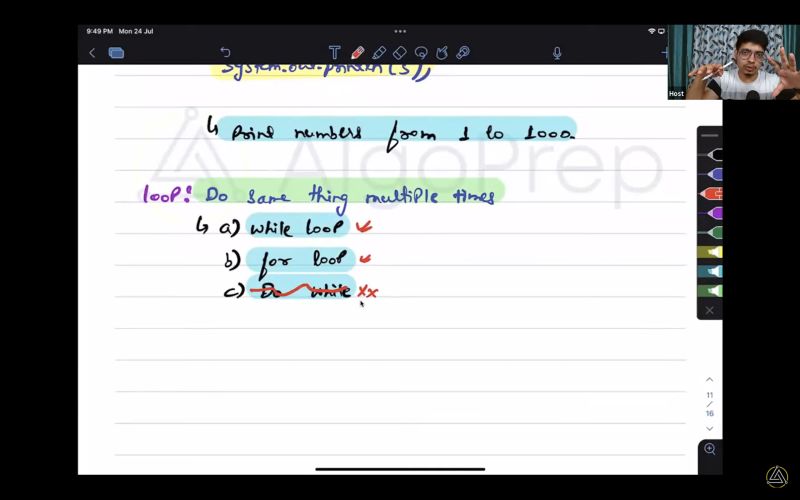 9:49 PM Mon 24 Jul
System.out.println(5);
↳ Print numbers from 1 to 1000.
AlgoPrep
loop: Do same thing multiple times
↳ a) while loop ✓
b) for loop ✓
c) Do while xx
Host
11
/
16